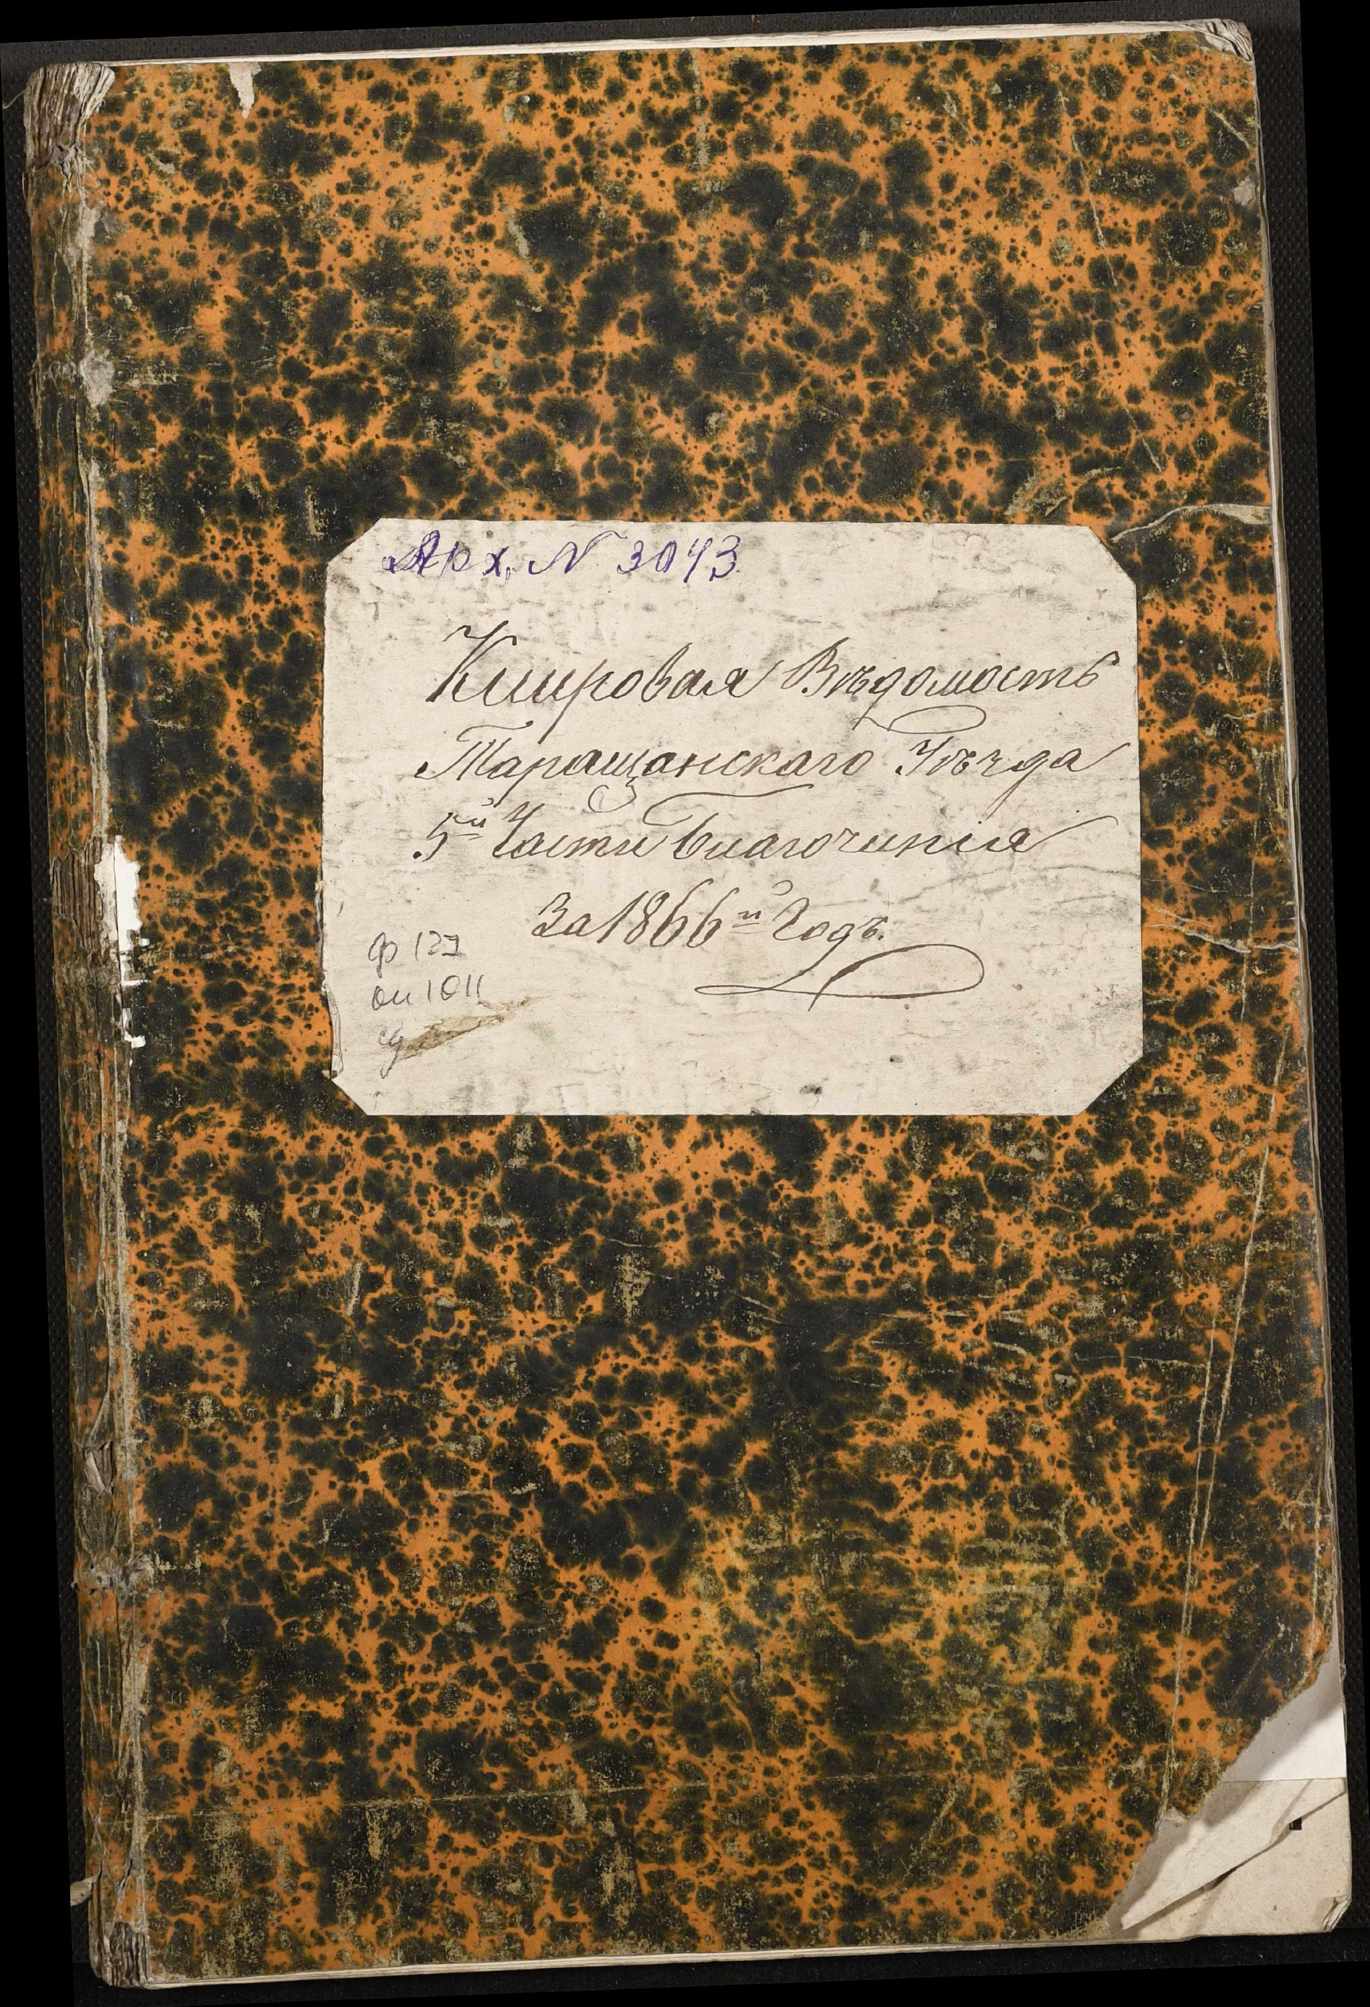 Арх. N 3043
Клировая Вѣдомость
Таращанскаго Уѣзда
5й Части Благочинія
За 1866й Годъ.
ф 127
оп 1011